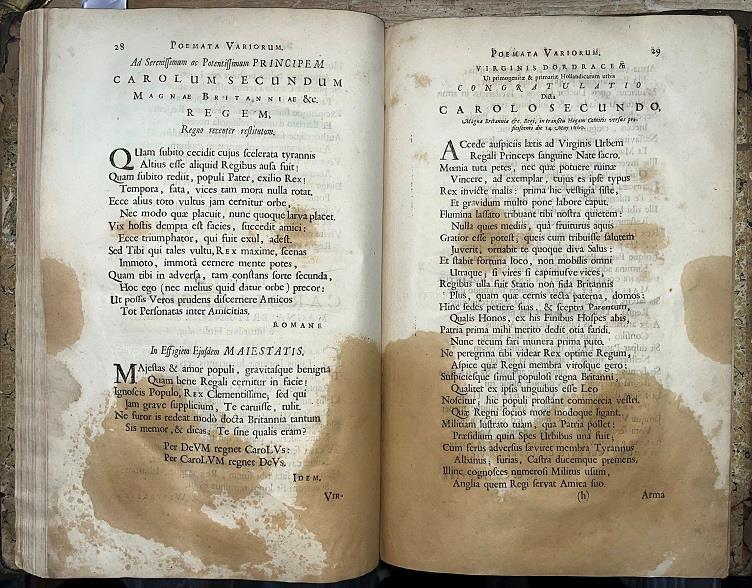 28 POEMATA VARIORUM.
Ad Serenissimum ac Potentissimum PRINCIPEM
CAROLUM SECUNDUM
MAGNÆ BRITANNIÆ &c.
REGEM,
Regno recenter restitutum.
QUam subito cecidit cujus scelerata tyrannis
Altius esse aliquid Regibus ausa fuit!
Quam subito rediit, populi Pater, exilio Rex!
Tempora, fata, vices tam mora nulla rotat.
Ecce alius toto vultus jam cernitur orbe,
Nec modo quæ placuit, nunc quoque larva placet.
Vix hostis dempta est facies, succedit amici:
Ecce triumphator, qui fuit exul, adest.
Sed Tibi qui tales vultu, REX maxime, scenas
Immoto, immotâ cernere mente potes,
Quam tibi in adversa, tam constans sorte secunda,
Hoc ego (nec melius quid datur orbe) precor:
Ut possis Veros prudens discernere Amicos
Tot Personatas inter Amicitias.
ROMANE
In Effigiem Ejusdem MAIESTATIS.
MAjestas & amor populi, gravitasque benigna
Quam bene Regali cernitur in facie!
Ignoscis Populo, REX Clementissime, sed qui
Jam grave supplicium, Te caruisse, tulit.
Ne furor is redeat modò docta Britannia tantum
Sis memor, & dicas: Te sine qualis eram?
Per DeVM regnet CaroLVs:
Per CaroLVM regnet DeVs.
IDEM.
VIR-
POEMATA VARIORUM. 29
VIRGINIS DORDRACEÆ
Ut primogenitæ & primariæ Hollandicarum urbis
CONGRATULATIO
Dicta
CAROLO SECUNDO,
Magnæ Britanniæ &c. Regi, in transitu Hagam Comitis versus pro-
ficiscente die 24. May 1660.
ACcede auspiciis lætis ad Virginis Urbem
Regali Princeps sanguine Nate sacro.
Mœnia tuta petes, nec quæ potiere ruinæ
Vincere, ad exemplar, tujus es ipse typus
Rex invicte malis: prima hic vestigia siste,
Et gravidum multo pone labore caput.
Flumina lassato tribuant tibi nostra quietem:
Nulla quies mediis, quâ fruiturus aquis
Gratior esse potest, quels cum tribuisse salutem
Juverit, ornabit te quoque diva Salus:
Et stabit fortuna loco, non mobilis omni
Utraque; si vires si capimusve vices,
Regibus ulla fuit Statio non fida Britannis
Plus, quam quæ cernis tecta paterna, domos:
Hinc sedes petiere suas, & sceptra Parentum,
Qualis Honos, ex his Finibus Hospes abis,
Patria prima mihi merito dedit otia fandi.
Nunc tecum fari munera prima puto.
Ne peregrina tibi videar Rex optime Regum,
Aspice quæ Regni membra virosque gero:
Suspiciesque simul populosi regna Britanni,
Qualiter ex ipsis unguibus esse Leo
Noscitur, hic populi prostant commercia vestri.
Quæ Regni socios more modoque ligant.
Militiam lustrato tuam, qua Patria pollet:
Præsidium quin Spes Urbibus una fuit,
Cum ferus adversus sæviret membra Tyrannus
Albanus; furias, Castra ducemque premens,
Illinc cognosces numerosi Militus usum,
Anglia quem Regi servat Amica suo.
(h) Arma